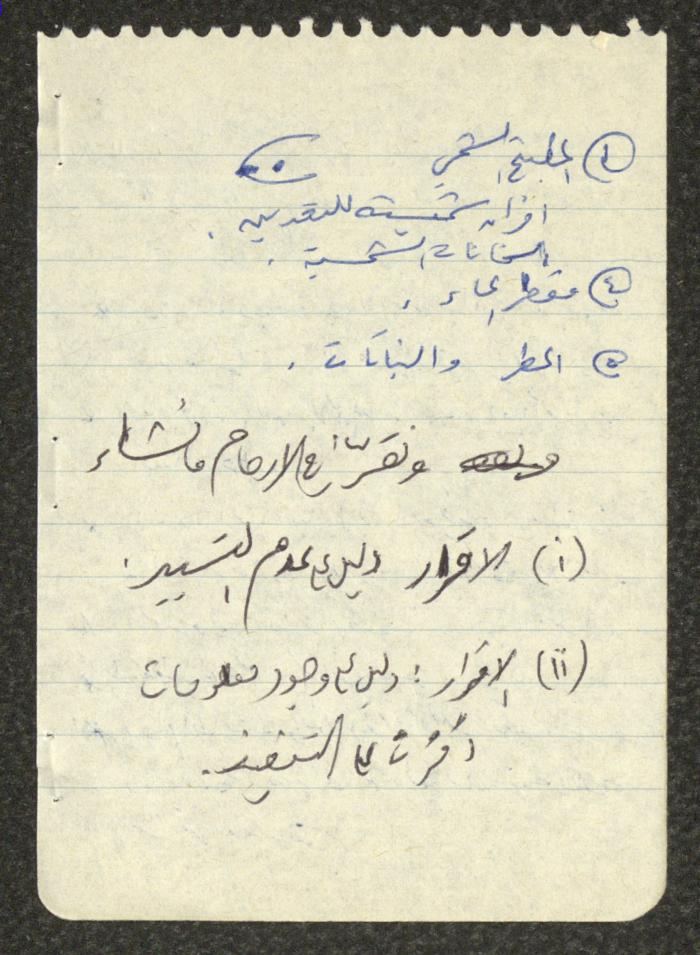 ① المطبخ الشمسي
افران شمسية للتعدين .
السخانات الشمسية .
④ مقطر الماء .
⑤ المطر والنباتات .
ونقرّ في الارحام ما نشاء
(i) الاقرار دليل على عدم التسيير .
(ii) الاقرار : دليل على وجود معلومات
أقرت على التنفيذ .